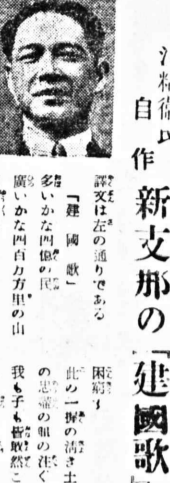 汪精衛氏
自作 新支那の「建國歌」
譯文は左の通りである
「建國歌」
多いかな四億の民
廣いかな四百万方里の山
困窮
此の一握の淸き土
の思
の注ぐ
我も子も皆敢然こ